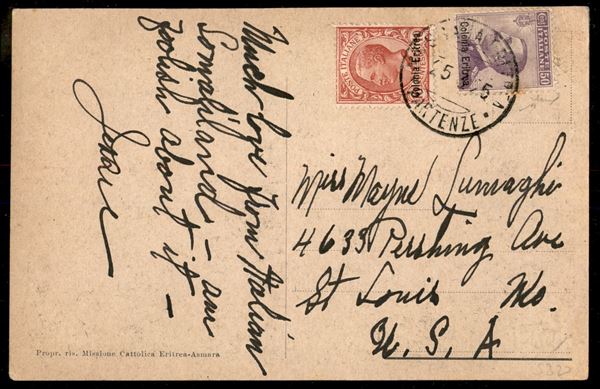 Much love from Italian
Somaliland - am
foolish about it -
POSTE ITALIANE
Colonia Eritrea
POSTE ITALIANE
50
Colonia Eritrea
PARTENZE
Miss Wayne Lumaghi
4633 Pershing Ave
St Louis Mo.
U. S. A
Propr. ris. Missione Cattolica Eritrea-Asmara